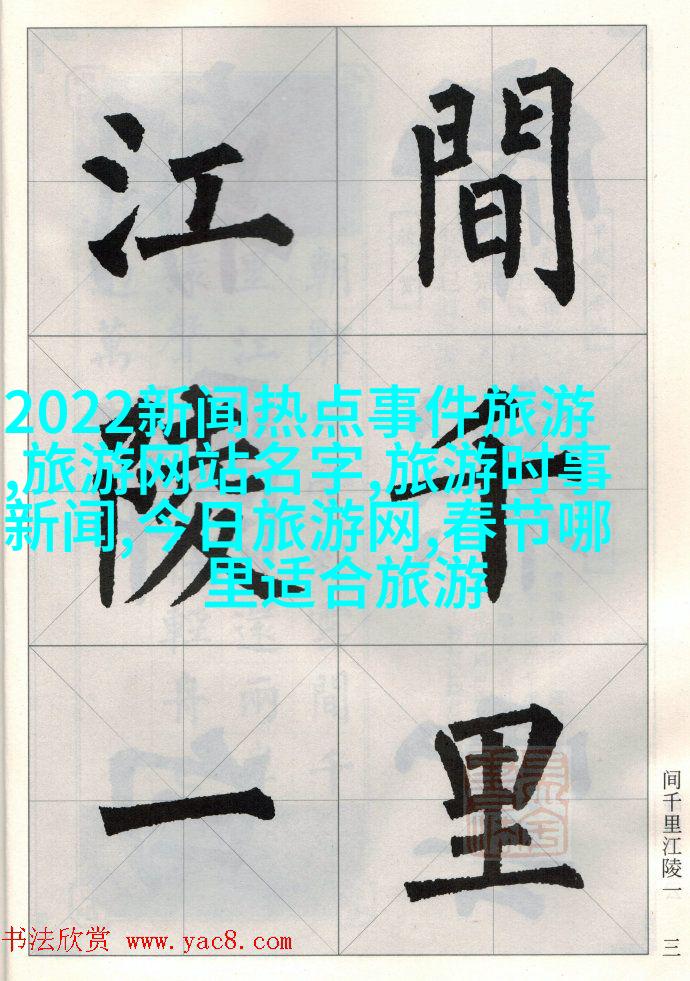 間千里
江陵一
2022新闻热点事件旅游
,旅游网站名字,旅游时事
新闻,今日旅游网,春节哪
里适合旅游
间千里江陵一
三
书法欣赏 www.yac8.com